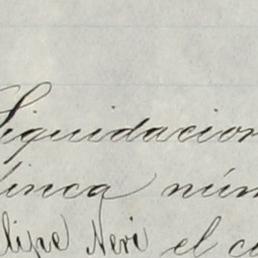 Liquidacion
finca núm
elipe Neri el c